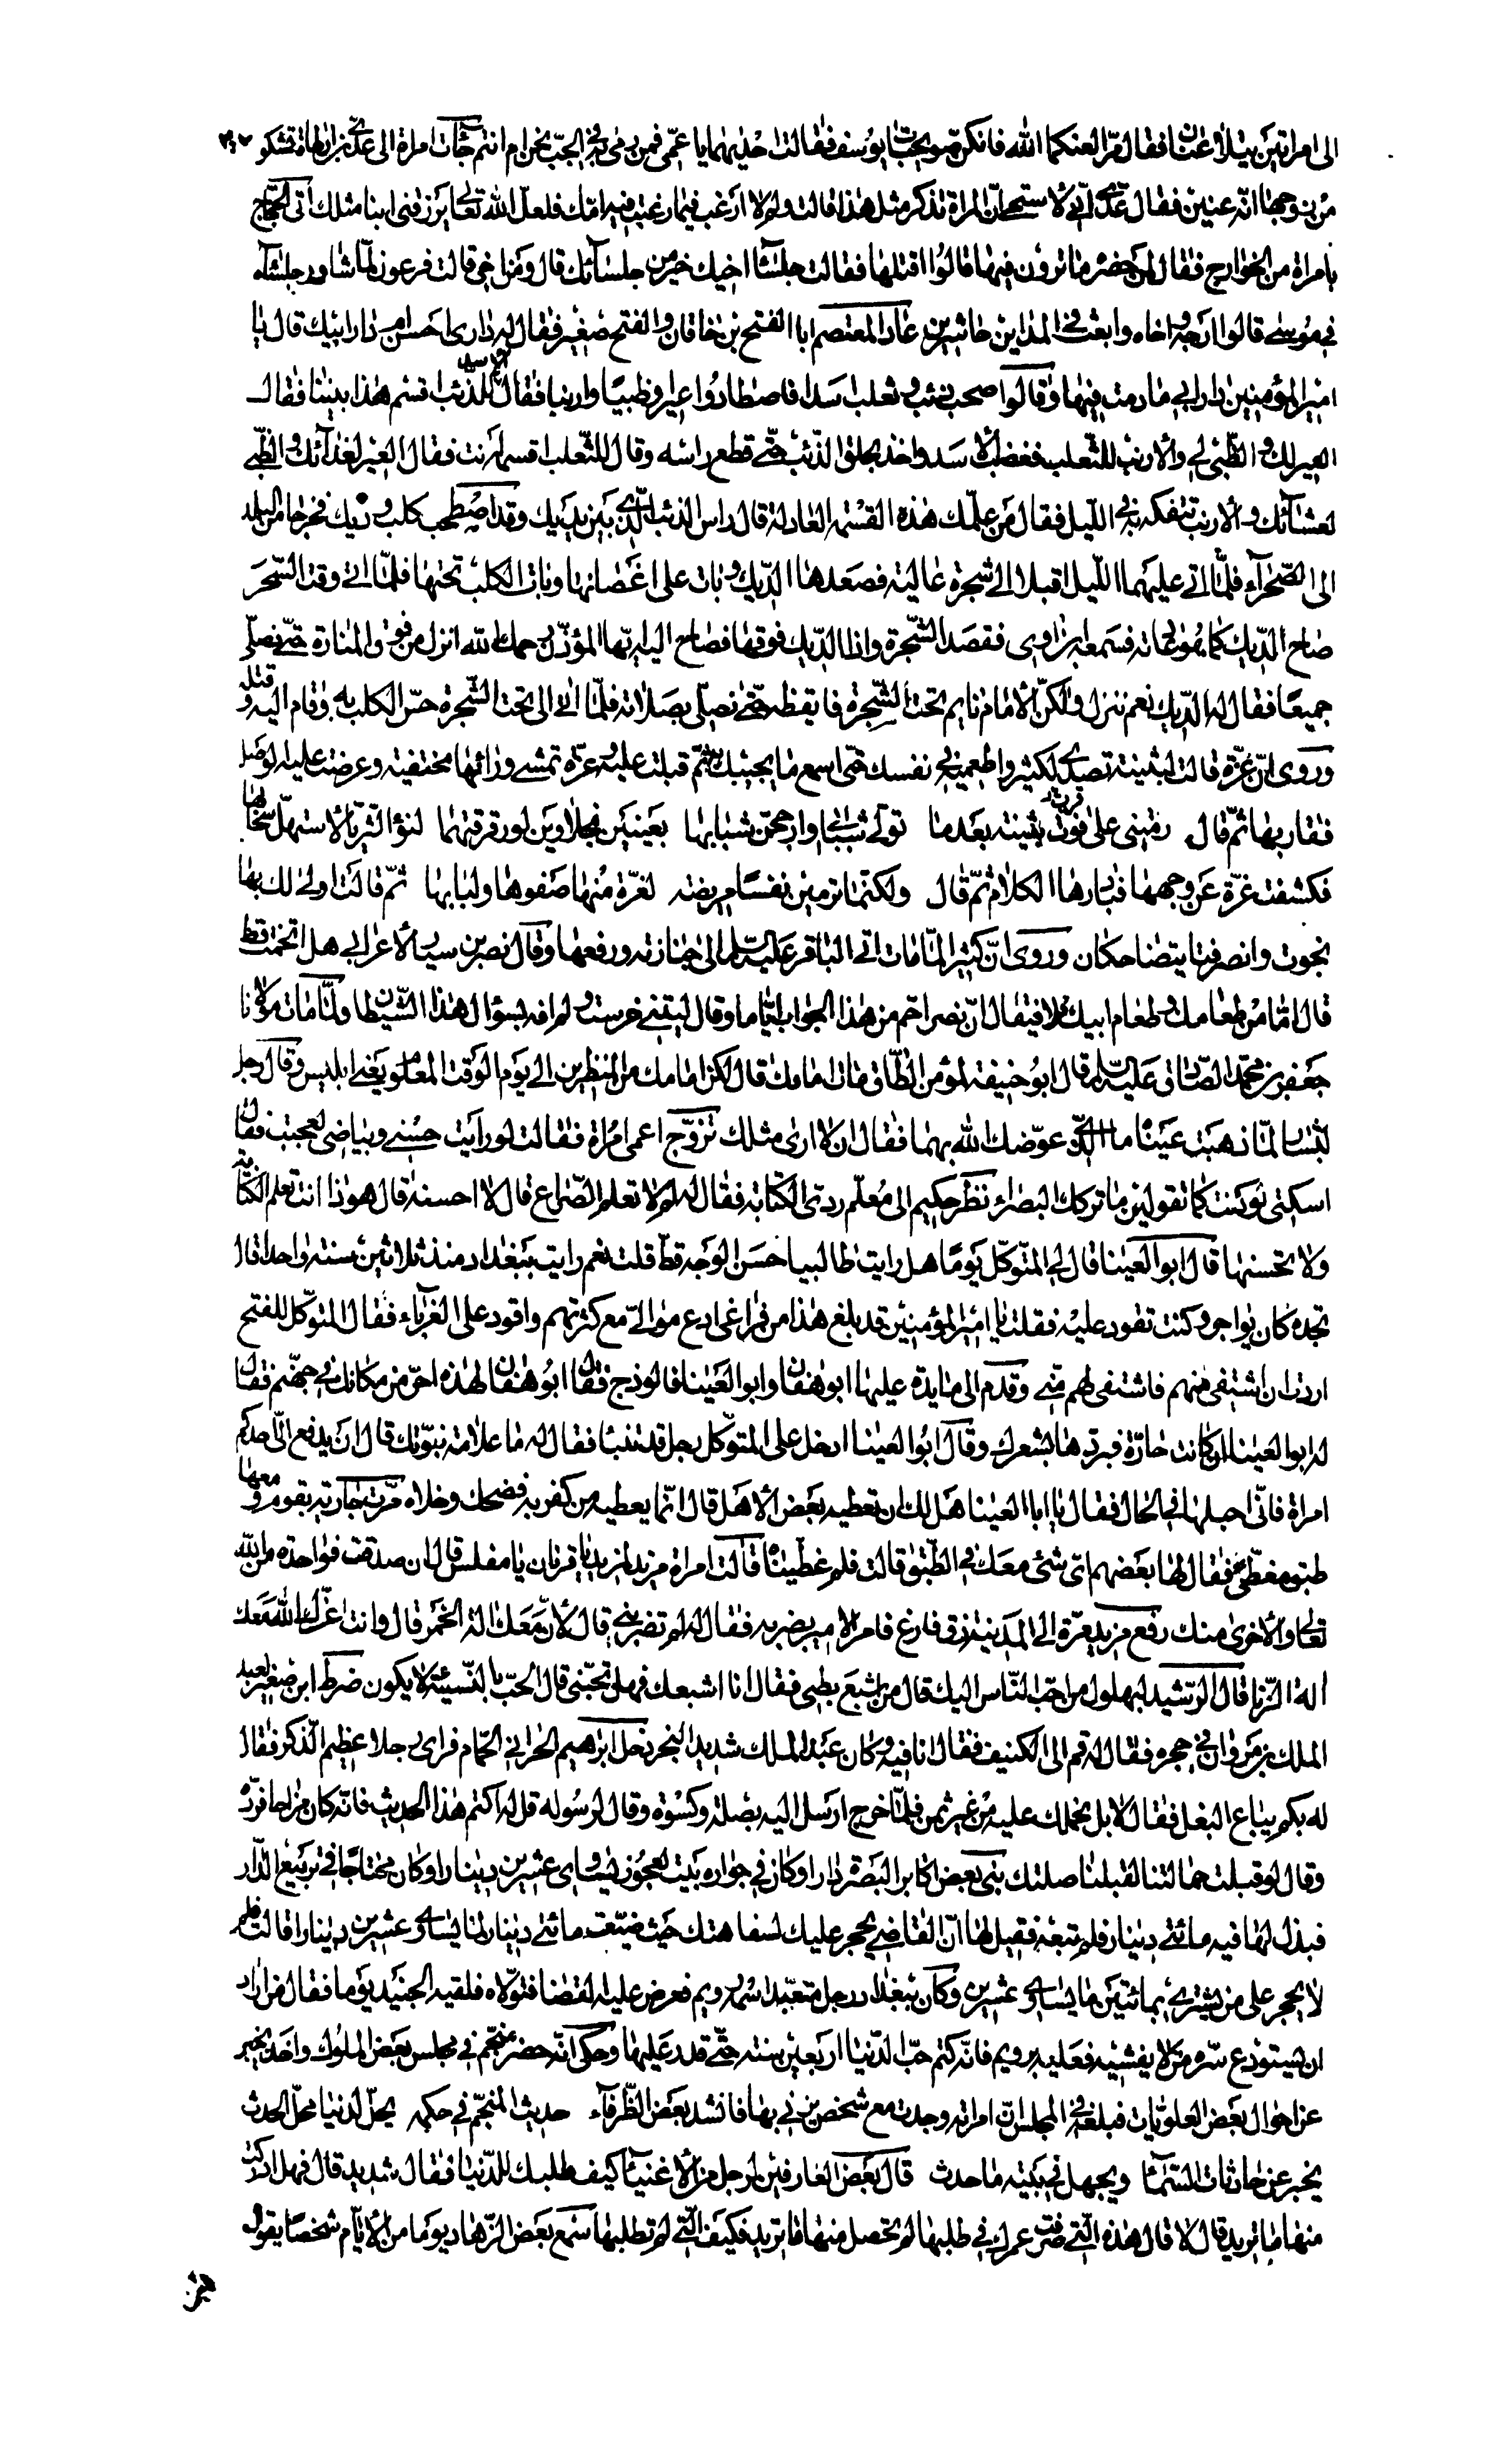 الى امراتين يتلاعنان فقال مرا لعنكما الله فانكن صويحبات يوسف فقالت احديهما يا عمى فمن رمى به فى الجب نحن ام انتم جاءت امراة الى عدى بن ارطاة تشكو
من زوجها انه عنين فقال عدى انى لاستحى ان المراة تذكر مثل هذا قالت ولم لا ارغب فيما رغبت فيه امك فلعل الله تعالى يرزقنى ابنا مثلك اتى الحجاج
بامراة من الخوارج فقال لمن حضره ما ترون فيها قالوا اقتلها فقالت جلساء اخيك خير من جلسائك قال ومن اخى قالت فرعون لما شاور جلسائه
فى موسى قالوا ارجه واخاه وابعث فى المداين حاشرين عاد المعتصم ابا الفتح بن خاقان والفتح صغير فقال له دارى احسن ام دار ابيك قال يا
امير المؤمنين دار ابى ما دمت فيها وقالوا صحب ذئب وثعلب اسدا فاصطادوا عيرا وظبيا وارنبا فقال الاسد للذئب اقسم هذا بيننا فقال
العير لك والظبى لى والارنب للثعلب فغضب الاسد واخذ بحلق الذئب حتى قطع راسه وقال للثعلب اقسمه انت فقال العير لغدائك والظبى
لعشائك والارنب تتفكه به فى الليل فقال من علمك هذه القسمة العادلة قال راس الذئب الذى بين يديك وقد اصطحب كلب وديك فخرجا من البلد
الى الصحراء فلما اتى عليهما الليل اقبلا الى شجرة عالية فصعدها الديك وبات على اغصانها وبات الكلب تحتها فلما اتى وقت السحر
صاح الديك كما هو عادته فسمعه ابن اوى فقصد الشجرة واذا الديك فوقها فصاح اليه ايها المؤذن رحمك الله انزل من فوق المنارة حتى نصلى
جميعا فقال له الديك نعم ننزل ولكن الامام نايم تحت الشجرة فايقظه حتى نصلى بصلاته فلما اتى الى تحت الشجرة حس الكلب به وقام اليه وقتله
وروى ان عزة قالت لبثينة تصدى لكثير واطمعيه فى نفسك حتى اسمع ما يجيبك به ثم قبلت عليه وعزة تمشى ورائها مختفية وعرضت عليه الوصل
فقاربها ثم قال رمتنى على فوت بثينة بعدما تولى شبابى وارجحن شبابها بعينين نجلاوين لو رقرقتهما لنوء الثريا لاستهل سحابها
فكشفت عزة عن وجهها فبادرها الكلام ثم قال ولكنما ترمين نفسا مريضة لعزة منها صفوها ولبابها ثم قالت اولى لك بها
نجوت وانصرفتا يتضاحكان وروى ان كثير لما مات اتى الباقر عليه السلم الى جنازته ورفعها وقال نصر بن سيار لاعرابى هل اتخمت قط
قال اما من طعامك وطعام ابيك فلا فيقال ان نصرا حم من هذا الجواب اياما وقال ليتنى خرست ولم افه بسؤال هذا الشيطان ولما مات مولانا
جعفر بن محمد الصادق عليه السلم قال ابو حنيفة لمؤمن الطاق مات امامك قال لكن امامك من المنظرين الى يوم الوقت المعلوم يعنى ابليس وقال رجل
لبشار لما ذهبت عيناه ما الذى عوضك الله بهما فقال ان لا ارى مثلك تزوج اعمى امراة فقالت لو رايت حسنى وبياضى لعجبت فقال
اسكتى لو كنت كما تقولين ما تركك البصراء نظر حكيم الى معلم ردى الكتابة فقال له لم لا تعلم الصراع قال لا احسنه قال هوذا انت تعلم الكتابة
ولا تحسنها قال ابو العينا قال لى المتوكل يوما هل رايت طالبيا حسن الوجه قط قلت نعم رايت ببغداد منذ ثلاثين سنة واحدا قال
تجده كان يواجر وكنت تقود عليه فقلت يا امير المؤمنين قد بلغ هذا من فراغى ادع موالى مع كثرتهم واقود على الغرباء فقال المتوكل للفتح
اردت ان اشتفى منهم فاشتفى لهم منى وقدم الى مايدة عليها ابو هفان وابو العينا فالوذج فقال ابو هفان لهذه احر من مكانك فى جهنم فقال
له ابو العينا ان كانت حارة فبردها بشعرك وقال ابو العينا ادخل على المتوكل رجل قد تنبا فقال له ما علامة نبوتك قال ان يدفع الى احدكم
امراة فانى احبلها فى الحال فقال يا ابا العينا هل لك ان تعطيه بعض الاهل قال انما يعطيه من كفر به فضحك وخلاه مرت جارية بقوم ومعها
طبق مغطى فقال لها بعضهم اى شئ معك فى الطبق قالت فلم غطيناه قالت امراة مزيد لمزيد يا قرنان يا مفلس قال ان صدقت فواحدة من الله
تعالى والاخرى منك رفع مزيد مرة الى المدينة زق فارغ فامر الامير بضربه فقال له لم تضربنى قال لان معك الة الخمر قال وانت اعزك الله معك
الة الزنا قال الرشيد لبهلول من احب الناس اليك قال من اشبع بطنى فقال انا اشبعك فهل تحبنى قال الحب بالنسيئة لا يكون ضرط ابن صغير لعبد
الملك بن مروان فى حجره فقال له قم الى الكنيف فقال انا فيه وكان عبد الملك شديد البخر دخل ابرهيم الحرانى الحمام فراى رجلا عظيم الذكر فقال
له بكم يباع البغل فقال لا بل نحملك عليه من غير ثمن فلما خرج ارسل اليه بصلة وكسوة وقال لرسوله قل له اكتم هذا الحديث فانه كان مزاحا فرده
وقال لو قبلت حمالتنا لقبلنا صلتك بنى بعض اكابر البصرة دارا وكان فى جواره بيت لعجوز يساوى عشرين دينارا وكان محتاجا فى تربيع الدار
فبذل لها فيه مائتى دينار فلم تبعه فقيل لها ان القاضى يحجر عليك لسفاهتك حيث ضيعت مائتى دينار لما يساوى عشرين دينارا قالت فلم
لا يحجر على من يشترى بمائتين ما يساوى عشرين وكان ببغداد رجل متعبد اسمه رويم فعرض عليه القضا فتولاه فلقيه الجنيد يوما فقال من اراد
ان يستودع سره من لا يفشيه فعليه برويم فانه كتم حب الدنيا اربعين سنة حتى قدر عليها وحكى انه حضر منجم فى مجلس بعض الملوك واخذ يخبر
عن احوال بعض العلويات فبلغه فى المجلس ان امراته وجدت مع شخص يزنى بها فانشد بعض الظرفاء حديث المنجم فى حكمه يحل لدنيا محل الحدث
يخبر عن حادثات السما ويجهل فى بيته ما حدث قال بعض العارفين لرجل من الاغنيا كيف طلبك للدنيا فقال شديد قال فهل ادركت
منها ما تريد قال لا قال هذه التى صرفت عمرك فى طلبها لم تحصل منها ما تريد فكيف التى لم تطلبها سمع بعض الزهاد يوما من الايام شخصا يقول